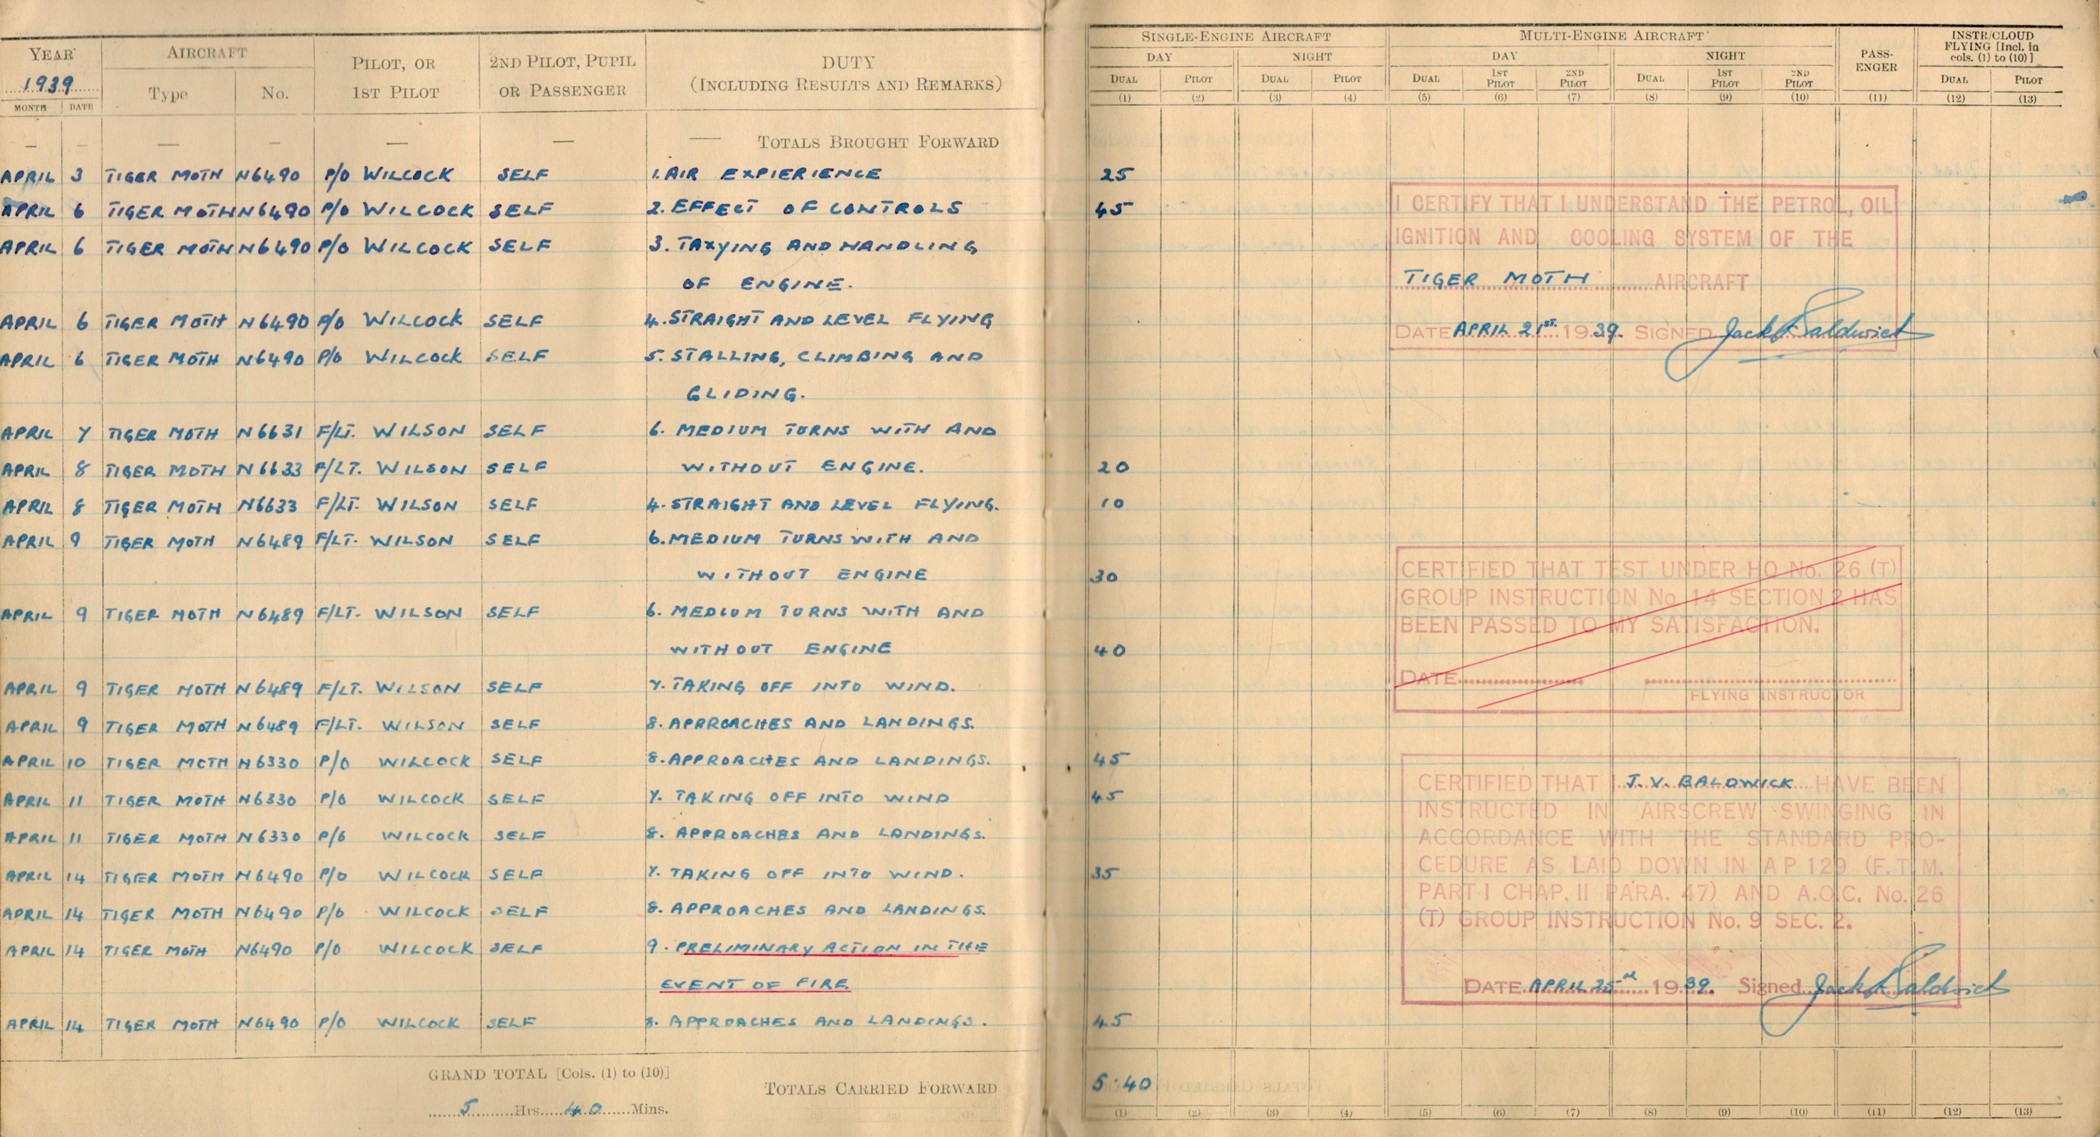 YEAR AIRCRAFT PILOT, OR 2ND PILOT, PUPIL DUTY SINGLE-ENGINE AIRCRAFT MULTI-ENGINE AIRCRAFT PASS- INSTR/CLOUD
1939 Type No. 1ST PILOT OR PASSENGER (INCLUDING RESULTS AND REMARKS) DAY NIGHT DAY NIGHT ENGER FLYING [Incl. in
cols. (1) to (10)]
MONTH DATE DUAL PILOT DUAL PILOT DUAL 1ST PILOT 2ND PILOT DUAL 1ST PILOT 2ND PILOT DUAL PILOT
(1) (2) (3) (4) (5) (6) (7) (8) (9) (10) (11) (12) (13)
— — — — — — — TOTALS BROUGHT FORWARD
APRIL 3 TIGER MOTH N6490 P/O WILCOCK SELF 1. AIR EXPIERIENCE 25
APRIL 6 TIGER MOTH N6490 P/O WILCOCK SELF 2. EFFECT OF CONTROLS 45
APRIL 6 TIGER MOTH N6490 P/O WILCOCK SELF 3. TAXYING AND HANDLING
OF ENGINE.
APRIL 6 TIGER MOTH N6490 P/O WILCOCK SELF 4. STRAIGHT AND LEVEL FLYING
APRIL 6 TIGER MOTH N6490 P/O WILCOCK SELF 5. STALLING, CLIMBING AND
GLIDING.
APRIL 7 TIGER MOTH N6631 F/LT. WILSON SELF 6. MEDIUM TURNS WITH AND
APRIL 8 TIGER MOTH N6633 F/LT. WILSON SELF WITHOUT ENGINE. 20
APRIL 8 TIGER MOTH N6633 F/LT. WILSON SELF 4. STRAIGHT AND LEVEL FLYING. 10
APRIL 9 TIGER MOTH N6489 F/LT. WILSON SELF 6. MEDIUM TURNS WITH AND
WITHOUT ENGINE 30
APRIL 9 TIGER MOTH N6489 F/LT. WILSON SELF 6. MEDIUM TURNS WITH AND
WITHOUT ENGINE 40
APRIL 9 TIGER MOTH N6489 F/LT. WILSON SELF 7. TAKING OFF INTO WIND.
APRIL 9 TIGER MOTH N6489 F/LT. WILSON SELF 8. APPROACHES AND LANDINGS.
APRIL 10 TIGER MOTH N6330 P/O WILCOCK SELF 8. APPROACHES AND LANDINGS. 45
APRIL 11 TIGER MOTH N6330 P/O WILCOCK SELF 7. TAKING OFF INTO WIND 45
APRIL 11 TIGER MOTH N6330 P/O WILCOCK SELF 8. APPROACHES AND LANDINGS.
APRIL 14 TIGER MOTH N6490 P/O WILCOCK SELF 7. TAKING OFF INTO WIND. 35
APRIL 14 TIGER MOTH N6490 P/O WILCOCK SELF 8. APPROACHES AND LANDINGS.
APRIL 14 TIGER MOTH N6490 P/O WILCOCK SELF 9. PRELIMINARY ACTION IN THE
EVENT OF FIRE.
APRIL 14 TIGER MOTH N6490 P/O WILCOCK SELF 8. APPROACHES AND LANDINGS. 45
GRAND TOTAL [Cols. (1) to (10)]
5 Hrs. 40 Mins.
TOTALS CARRIED FORWARD 5.40
(1) (2) (3) (4) (5) (6) (7) (8) (9) (10) (11) (12) (13)
I CERTIFY THAT I UNDERSTAND THE PETROL, OIL
IGNITION AND COOLING SYSTEM OF THE
TIGER MOTH AIRCRAFT
DATE APRIL 21st. 1939. SIGNED Jack V. Baldwick
CERTIFIED THAT TEST UNDER HQ No. 26 (T)
GROUP INSTRUCTION No 14 SECTION 2 HAS
BEEN PASSED TO MY SATISFACTION.
DATE
FLYING INSTRUCTOR
CERTIFIED THAT I J. V. BALDWICK HAVE BEEN
INSTRUCTED IN AIRSCREW SWINGING IN
ACCORDANCE WITH THE STANDARD PRO-
CEDURE AS LAID DOWN IN A P 129 (F.T.M.
PART I CHAP. II PARA. 47) AND A.O.C. No. 26
(T) GROUP INSTRUCTION No. 9 SEC. 2.
DATE APRIL 25 1939. Signed Jack V. Baldwick